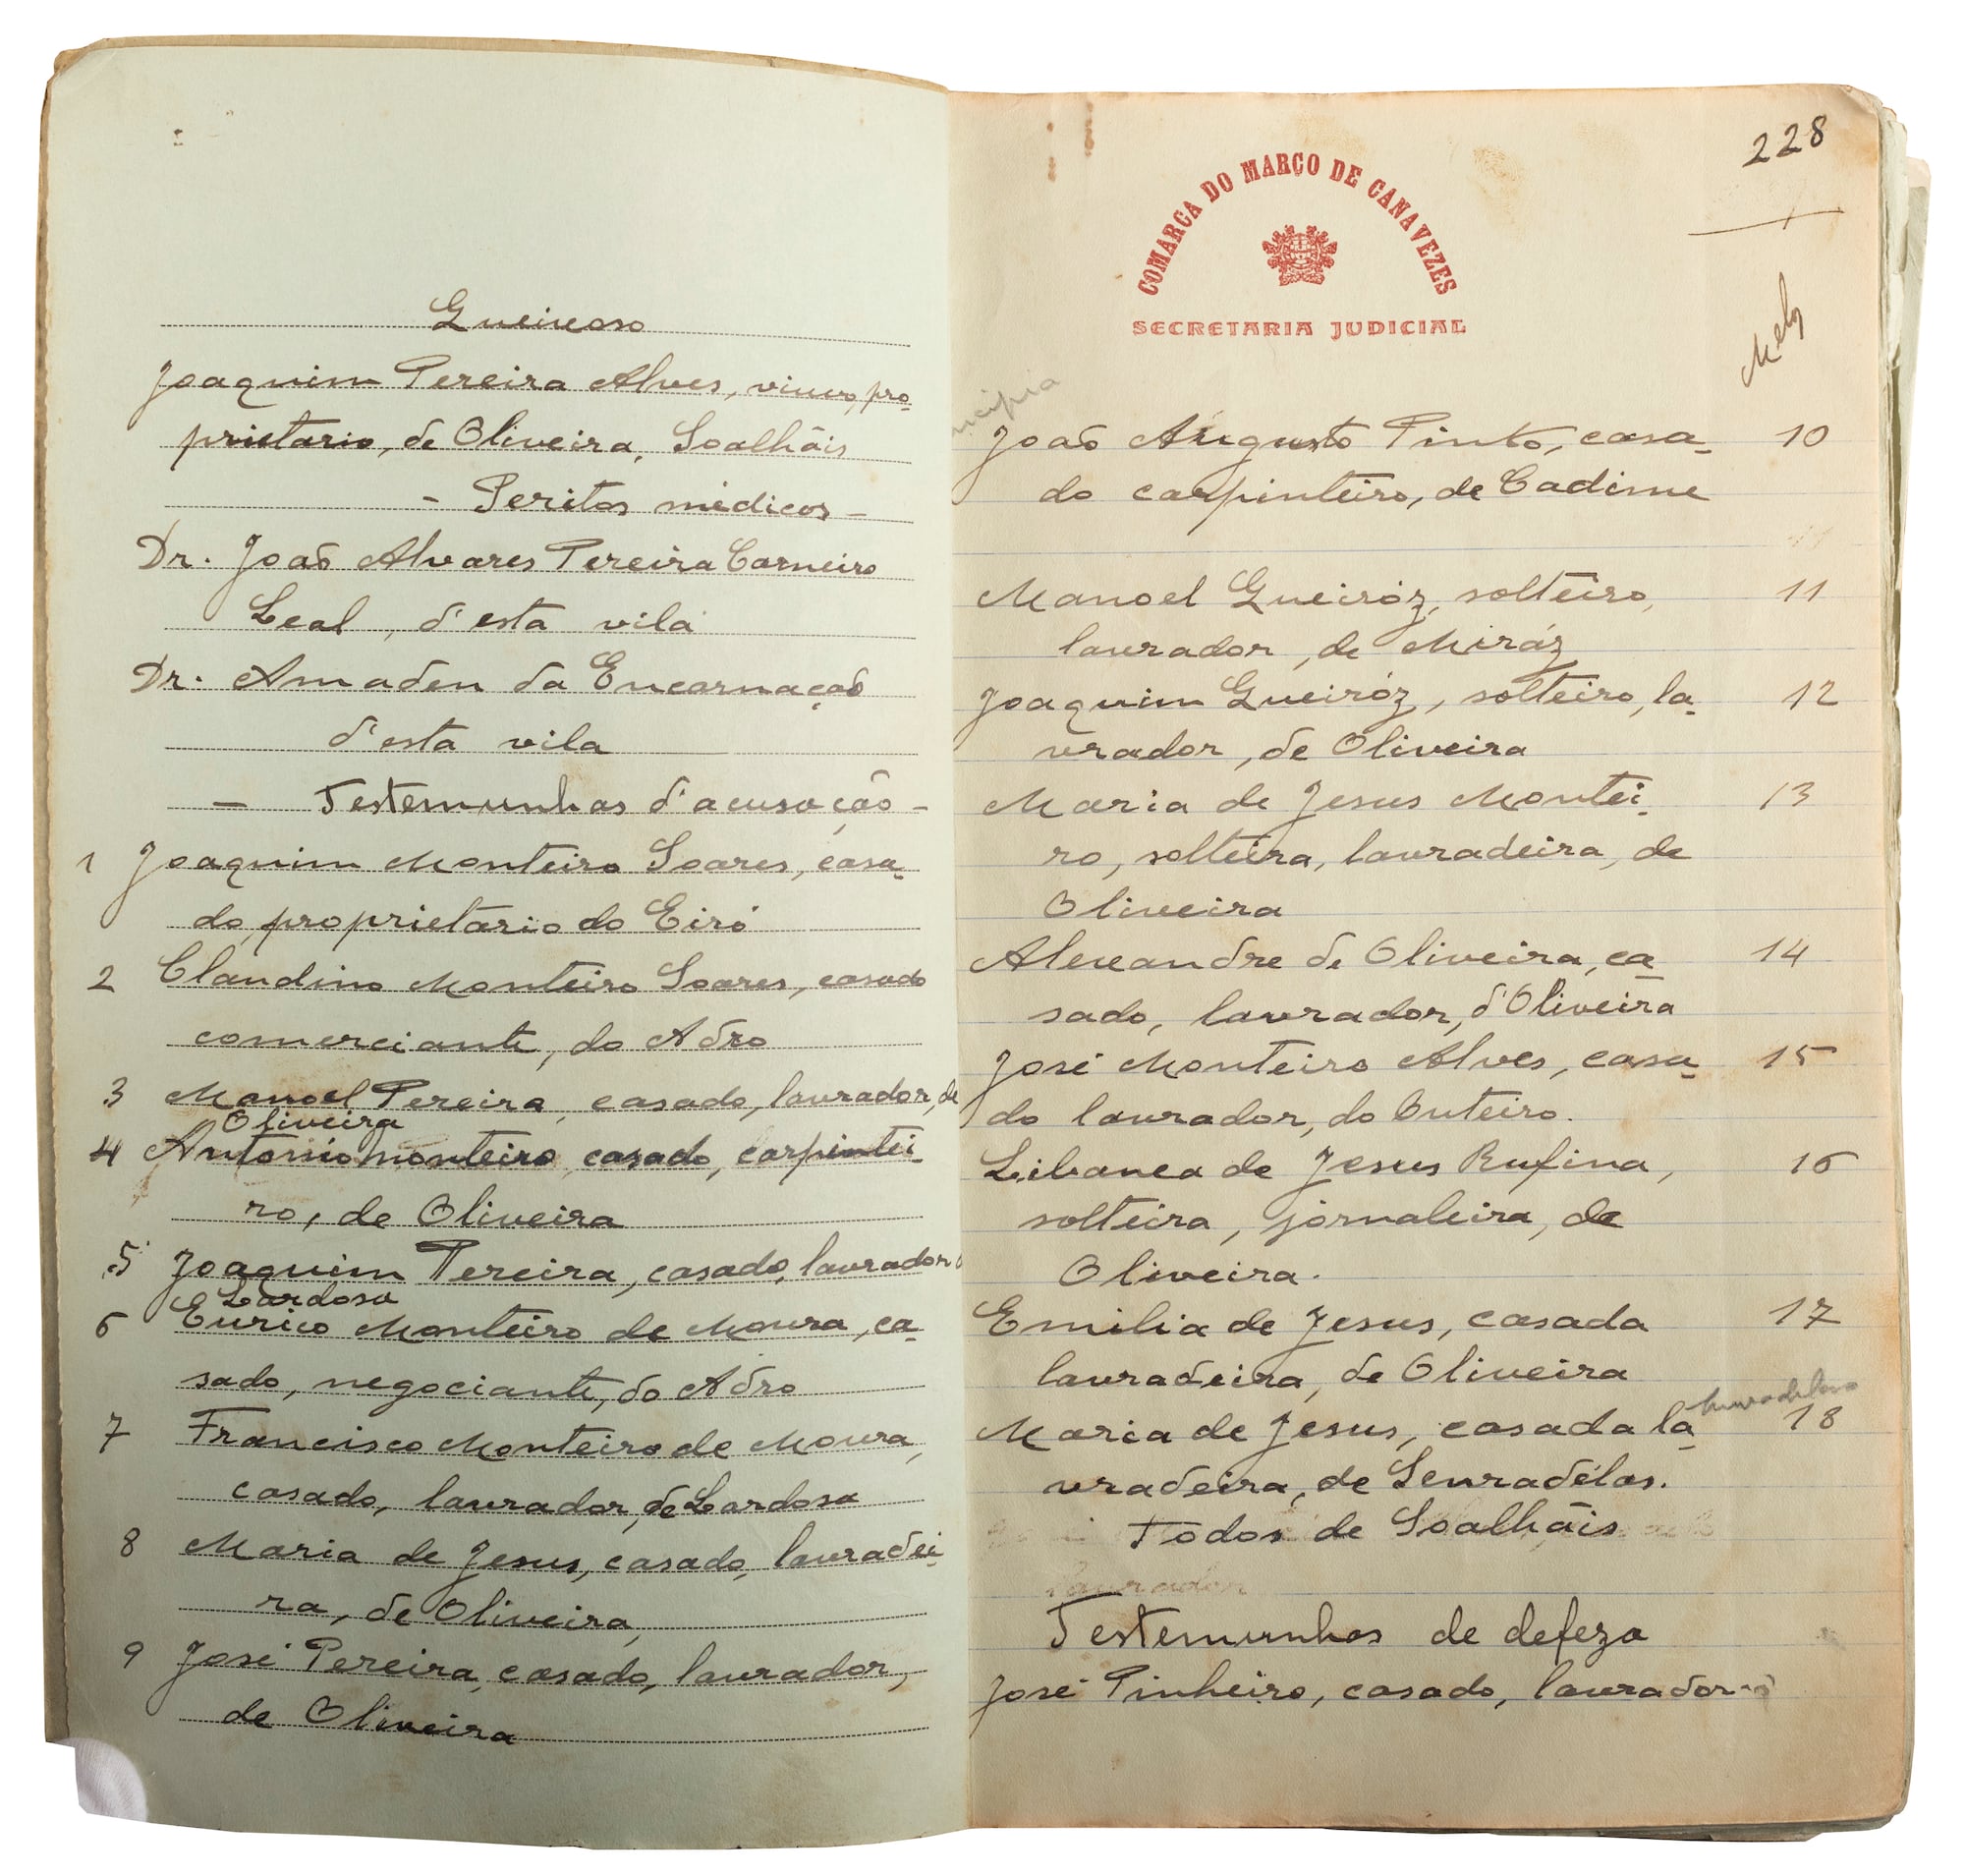 Queixoso
Joaquim Pereira Alves, viuvo, pro-
prietario, de Oliveira, Soalhãis
- Peritos médicos -
Dr. João Alvares Pereira Carneiro
Leal, d'esta vila
Dr. Amadeu da Encarnação
d'esta vila
- Testemunhas d'acusação -
1 Joaquim Monteiro Soares, casa-
do, proprietario do Eiró
2 Claudino Monteiro Soares, casado
comerciante, do Adro
3 Manoel Pereira, casado, lavrador, de
Oliveira
4 Antonio Monteiro, casado, carpintei-
ro, de Oliveira
5 Joaquim Pereira, casado, lavrador
Lardosa
6 Eurico Monteiro de Moura, ca-
sado, negociante, do Adro
7 Francisco Monteiro de Moura,
casado, lavrador, de Lardosa
8 Maria de Jesus, casado, lavradei-
ra, de Oliveira,
9 José Pereira, casado, lavrador,
de Oliveira
228
COMARCA DO MARCO DE CANAVEZES
SECRETARIA JUDICIAL
João Augusto Pinto, casa- 10
do carpinteiro, de Cadime
Manoel Queiróz, solteiro, 11
lavrador, de Miráz
Joaquim Queiróz, solteiro, la- 12
vrador, de Oliveira
Maria de Jesus Montei- 13
ro, solteira, lavradeira, de
Oliveira
Alexandre de Oliveira, ca- 14
sado, lavrador, d'Oliveira
José Monteiro Alves, casa- 15
do lavrador, do Outeiro.
Libanea de Jesus Rufina, 16
solteira, jornaleira, de
Oliveira.
Emilia de Jesus, casada 17
lavradeira, de Oliveira
Maria de Jesus, casada la- 18
vradeira, de Sevradélas.
Todos de Soalhãis
lavrador
Testemunhas de defeza
José Pinheiro, casado, lavrador